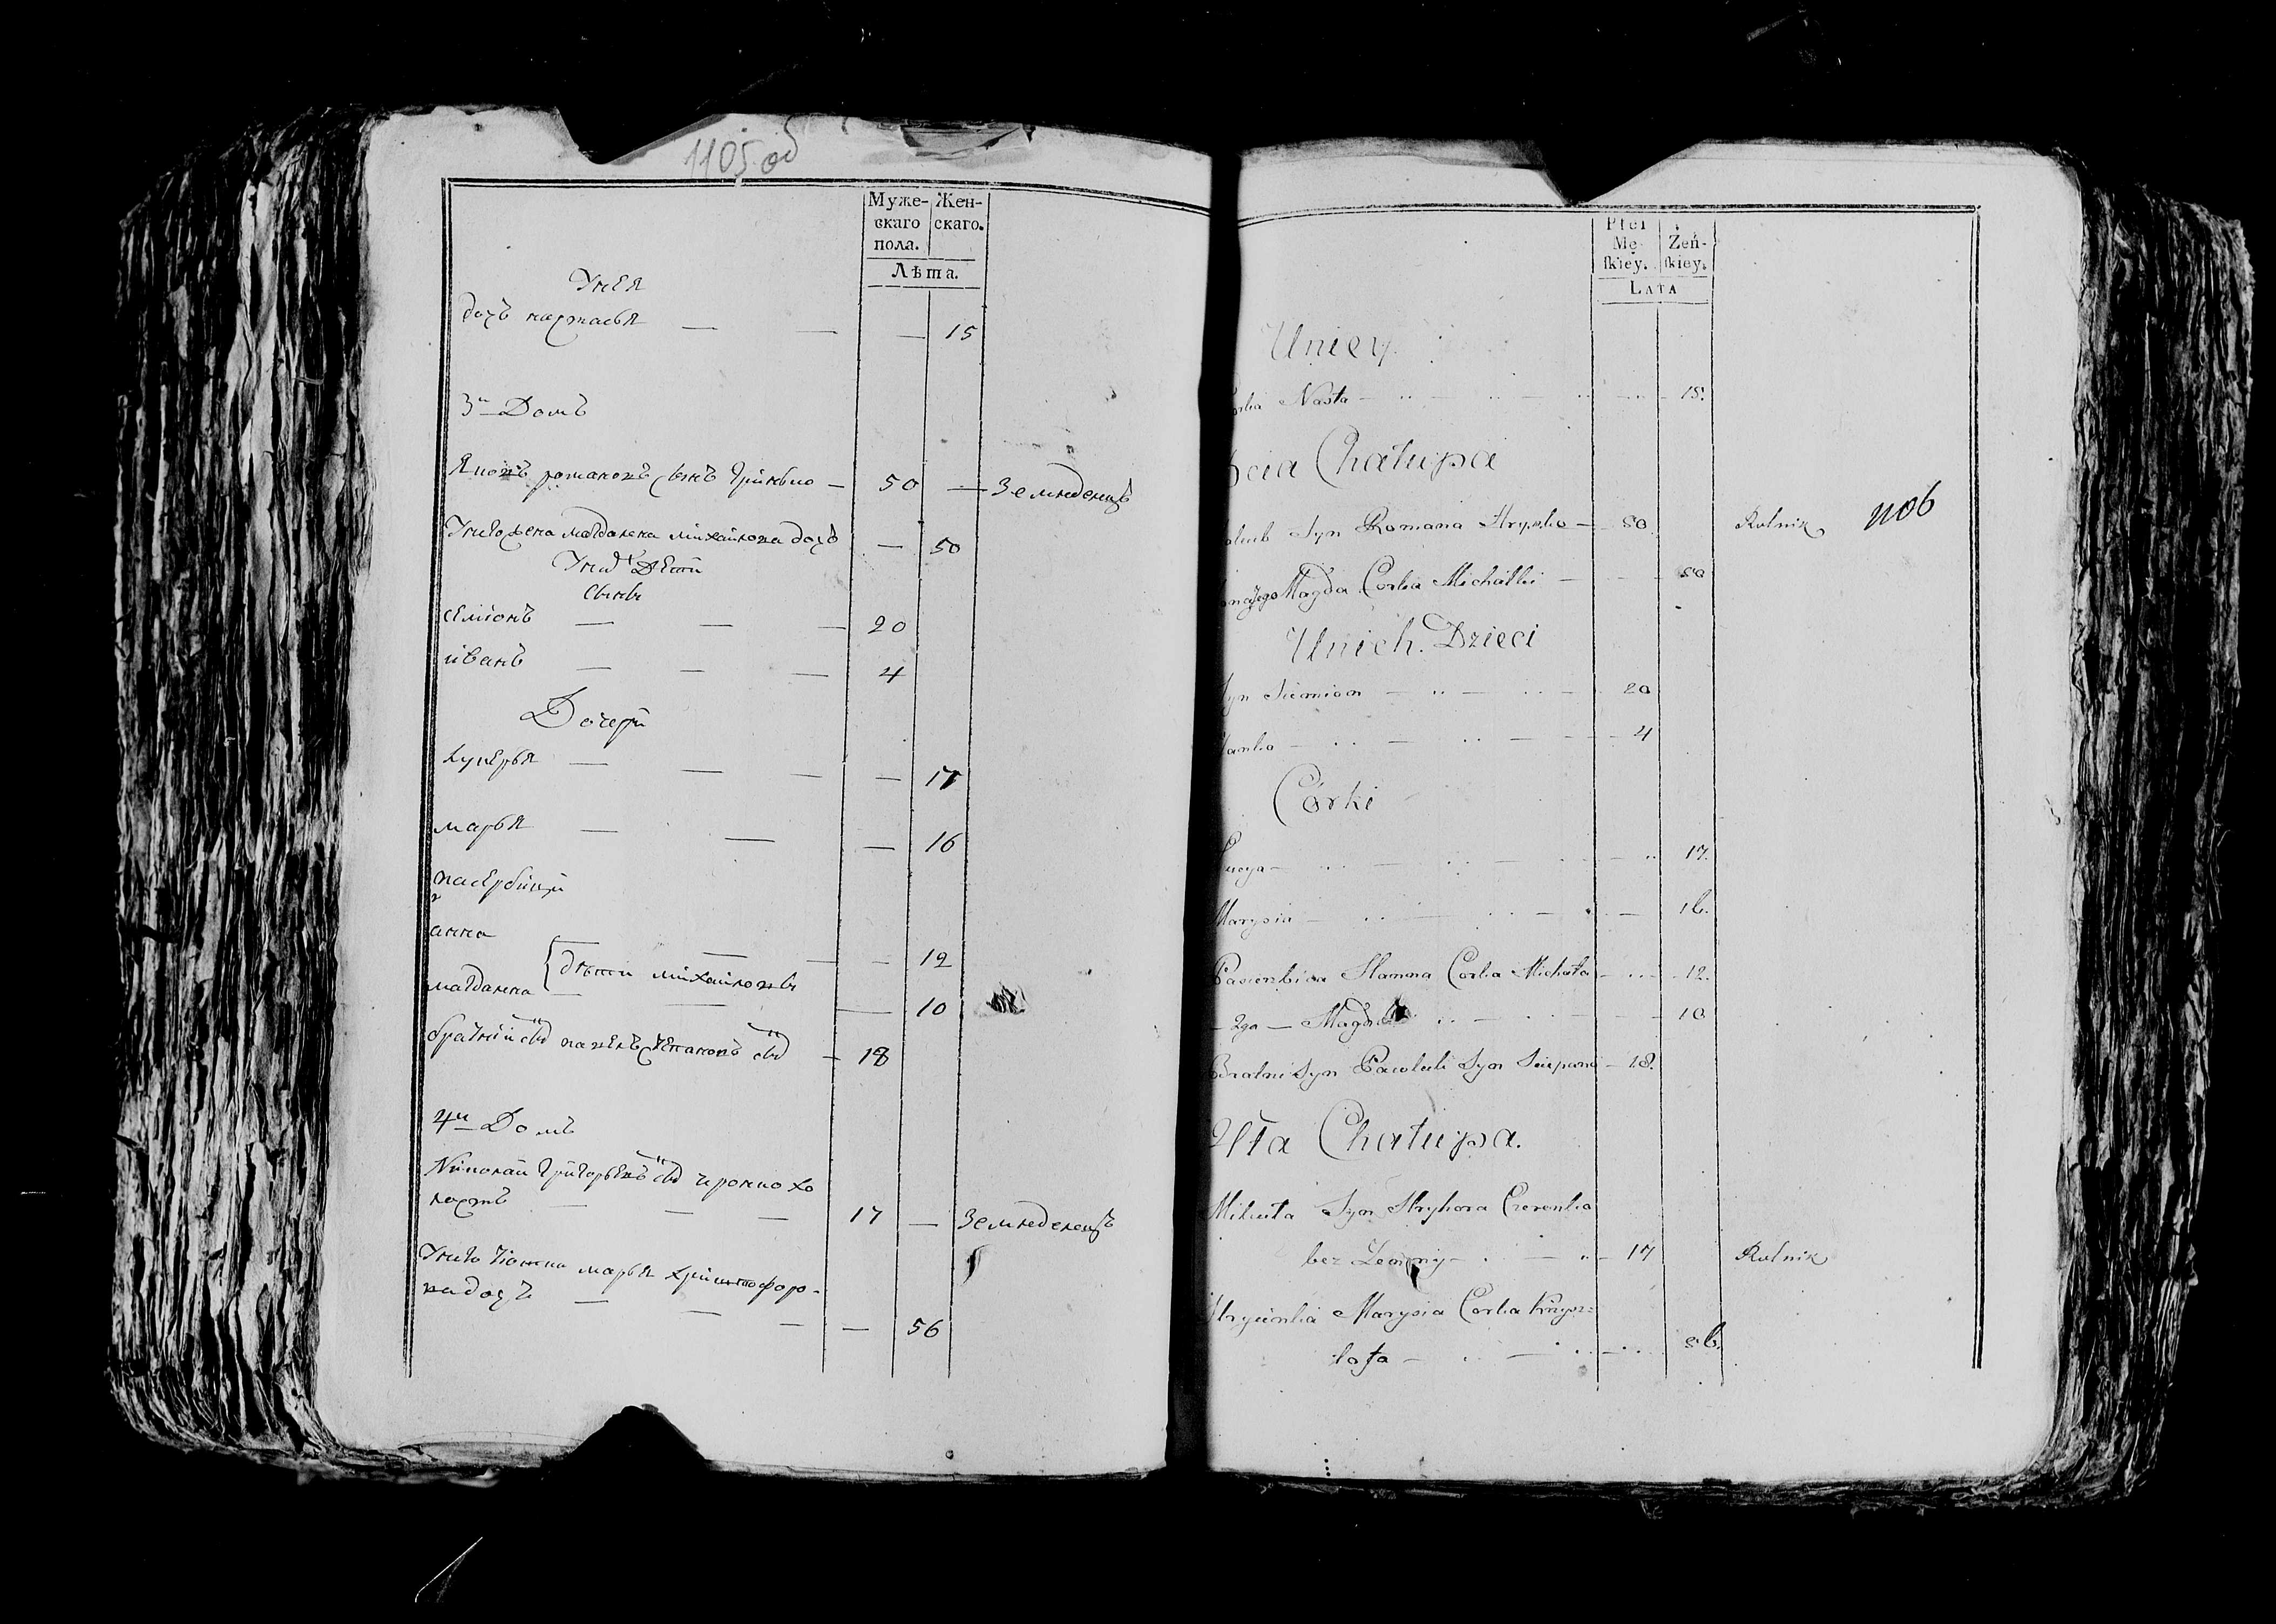 1105 об
Муже-
скаго
пола.
Жен-
скаго.
Лѣта.
Унея
дочъ настасья — — — 15
3й Домъ
Яковъ романовъ сынъ Гринько — 50 — Земледелецъ
Унего жена магдалена михайлова дочъ — 50
Уних Дети
Сыны
семионъ — — — 20
иванъ — — — 4
Дочери
лукерья — — — — 17
марья — — — 16
пасербицы
анна — — — 12
дѣти михайловы
магдалена — — — 10
братний снъ павелъ степановъ снъ — 18
4й Домъ
Николай Григорьевъ снъ
— — — 17 — Земледелецъ
Унего марья христофоро-
ва дочъ — — — — 56
Płei
Mę-
ſkiey.
Żeń-
ſkiey.
LATA
Uniey
Nasta 15.
Chałupa
Syn Romana Hryńko — 50 Rolnik
1106
Magda Corka Michałki — 50
Unich. Dzieci
Syn Siemion — 20
4
Córki
17.
Marysia — 16.
Pasierbica Hanna Corka Michała — 12.
— 2ga — Magda 10
Bratni Syn Pawluk Syn Sciepana — 18.
4ta Chałupa.
Mikita Syn Hryhora
bez Zenny — 17 Rolnik
Marysia Corka Krysz=
tofa — 56.